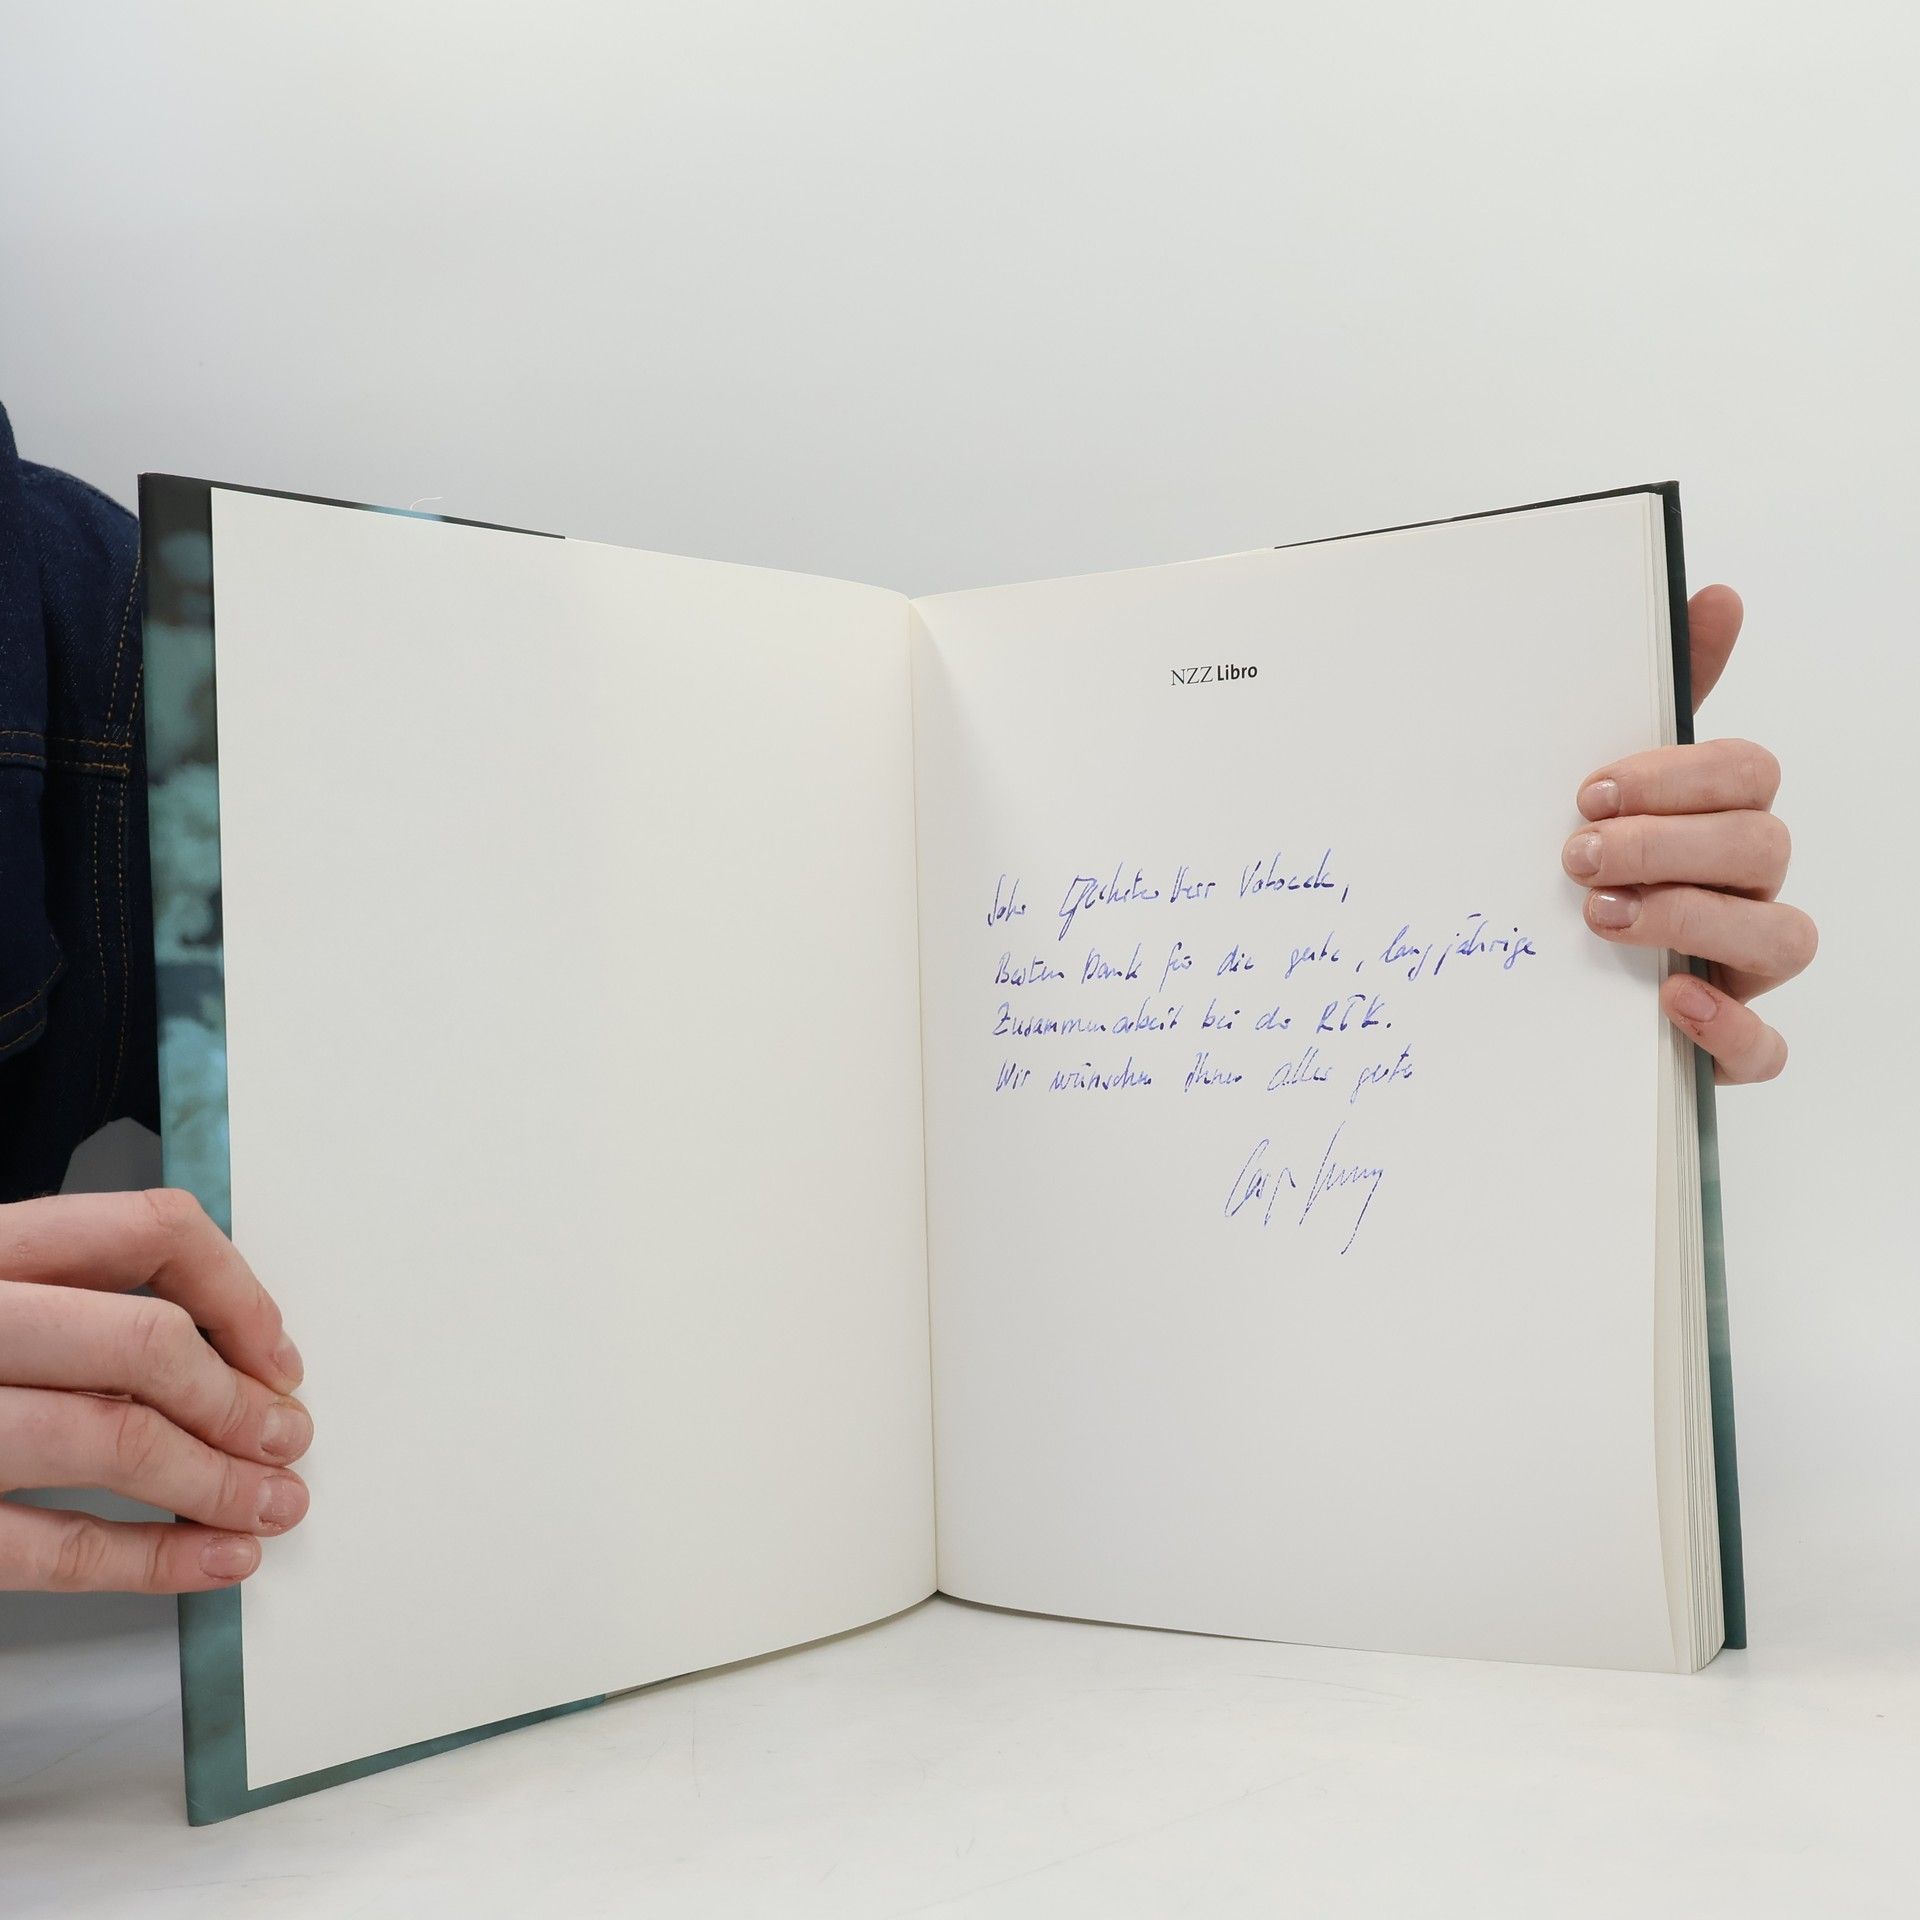 NZZ Libro
Sehr geehrter Herr
Besten Dank für die gute, langjährige
Zusammenarbeit bei der RTK.
Wir wünschen Ihnen alles gute